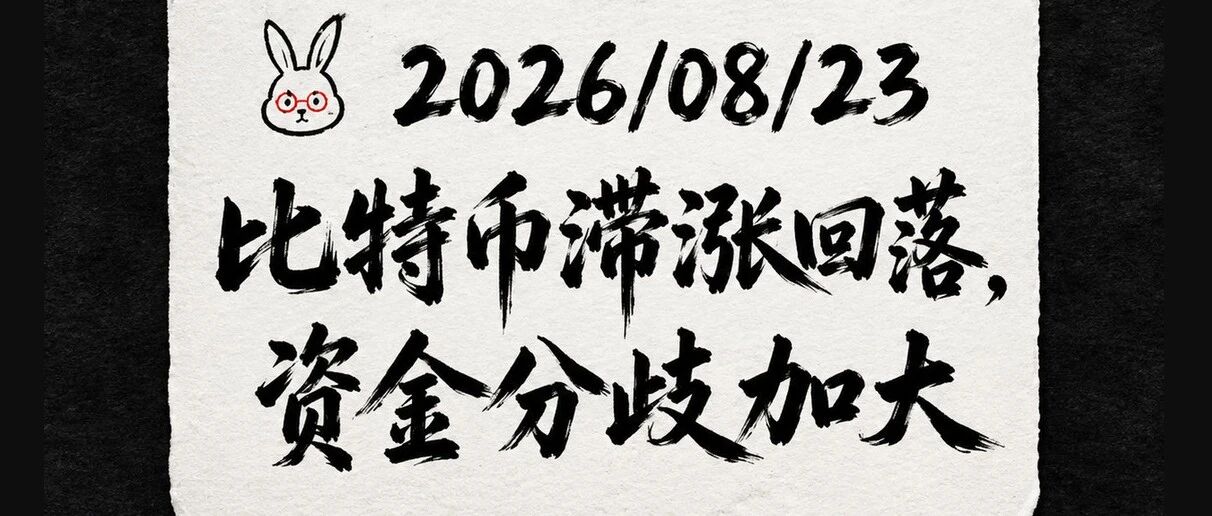 2026/08/23
比特币滞涨回落，
资金分歧加大